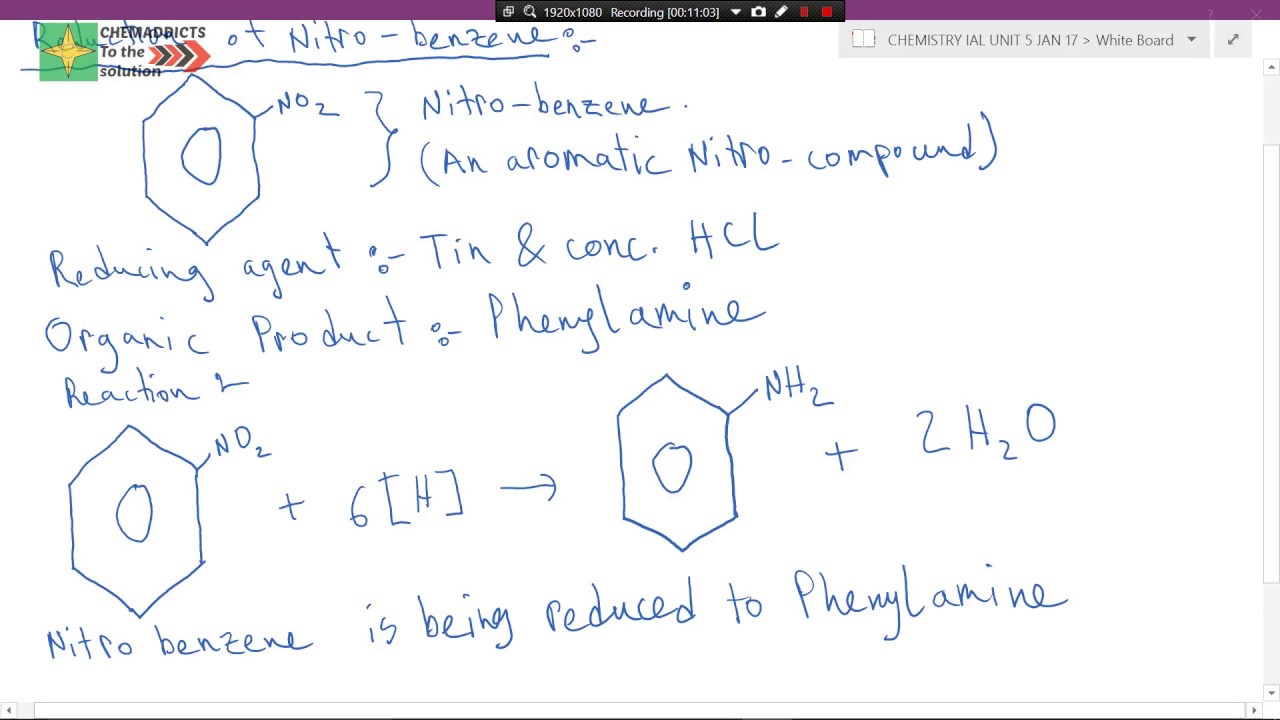 1920x1080 Recording [00:11:03]
CHEMISTRY IAL UNIT 5 JAN 17 > White Board
CHEMADDICTS
To the
solution
Reduction of Nitro-benzene :-
NO2
Nitro-benzene.
(An aromatic Nitro-compound)
Reducing agent :- Tin & conc. HCl
Organic Product :- Phenylamine
Reaction :-
NO2 + 6[H] → NH2 + 2H2O
Nitro benzene is being reduced to Phenylamine